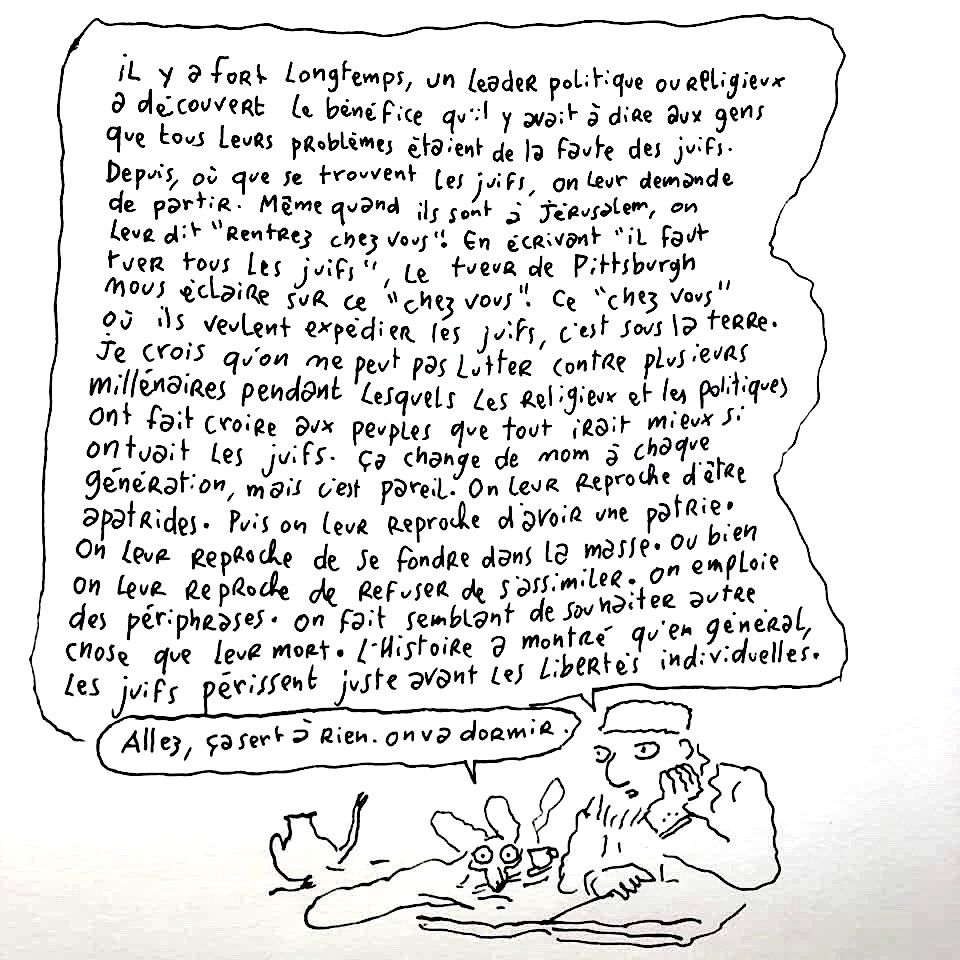 il y a fort longtemps, un leader politique ou religieux
a découvert le bénéfice qu'il y avait à dire aux gens
que tous leurs problèmes étaient de la faute des juifs.
Depuis, où que se trouvent les juifs, on leur demande
de partir. Même quand ils sont à Jérusalem, on
leur dit "rentrez chez vous". En écrivant "il faut
tuer tous les juifs", le tueur de Pittsburgh
nous éclaire sur ce "chez vous". Ce "chez vous"
où ils veulent expédier les juifs, c'est sous la terre.
Je crois qu'on ne peut pas lutter contre plusieurs
millénaires pendant lesquels les religieux et les politiques
ont fait croire aux peuples que tout irait mieux si
on tuait les juifs. ça change de nom à chaque
génération, mais c'est pareil. On leur reproche d'être
apatrides. Puis on leur reproche d'avoir une patrie.
On leur reproche de se fondre dans la masse. ou bien
on leur reproche de refuser de s'assimiler. on emploie
des périphrases. on fait semblant de souhaiter autre
chose que leur mort. L'Histoire a montré qu'en général,
les juifs périssent juste avant les libertés individuelles.
Allez, ça sert à rien. on va dormir.